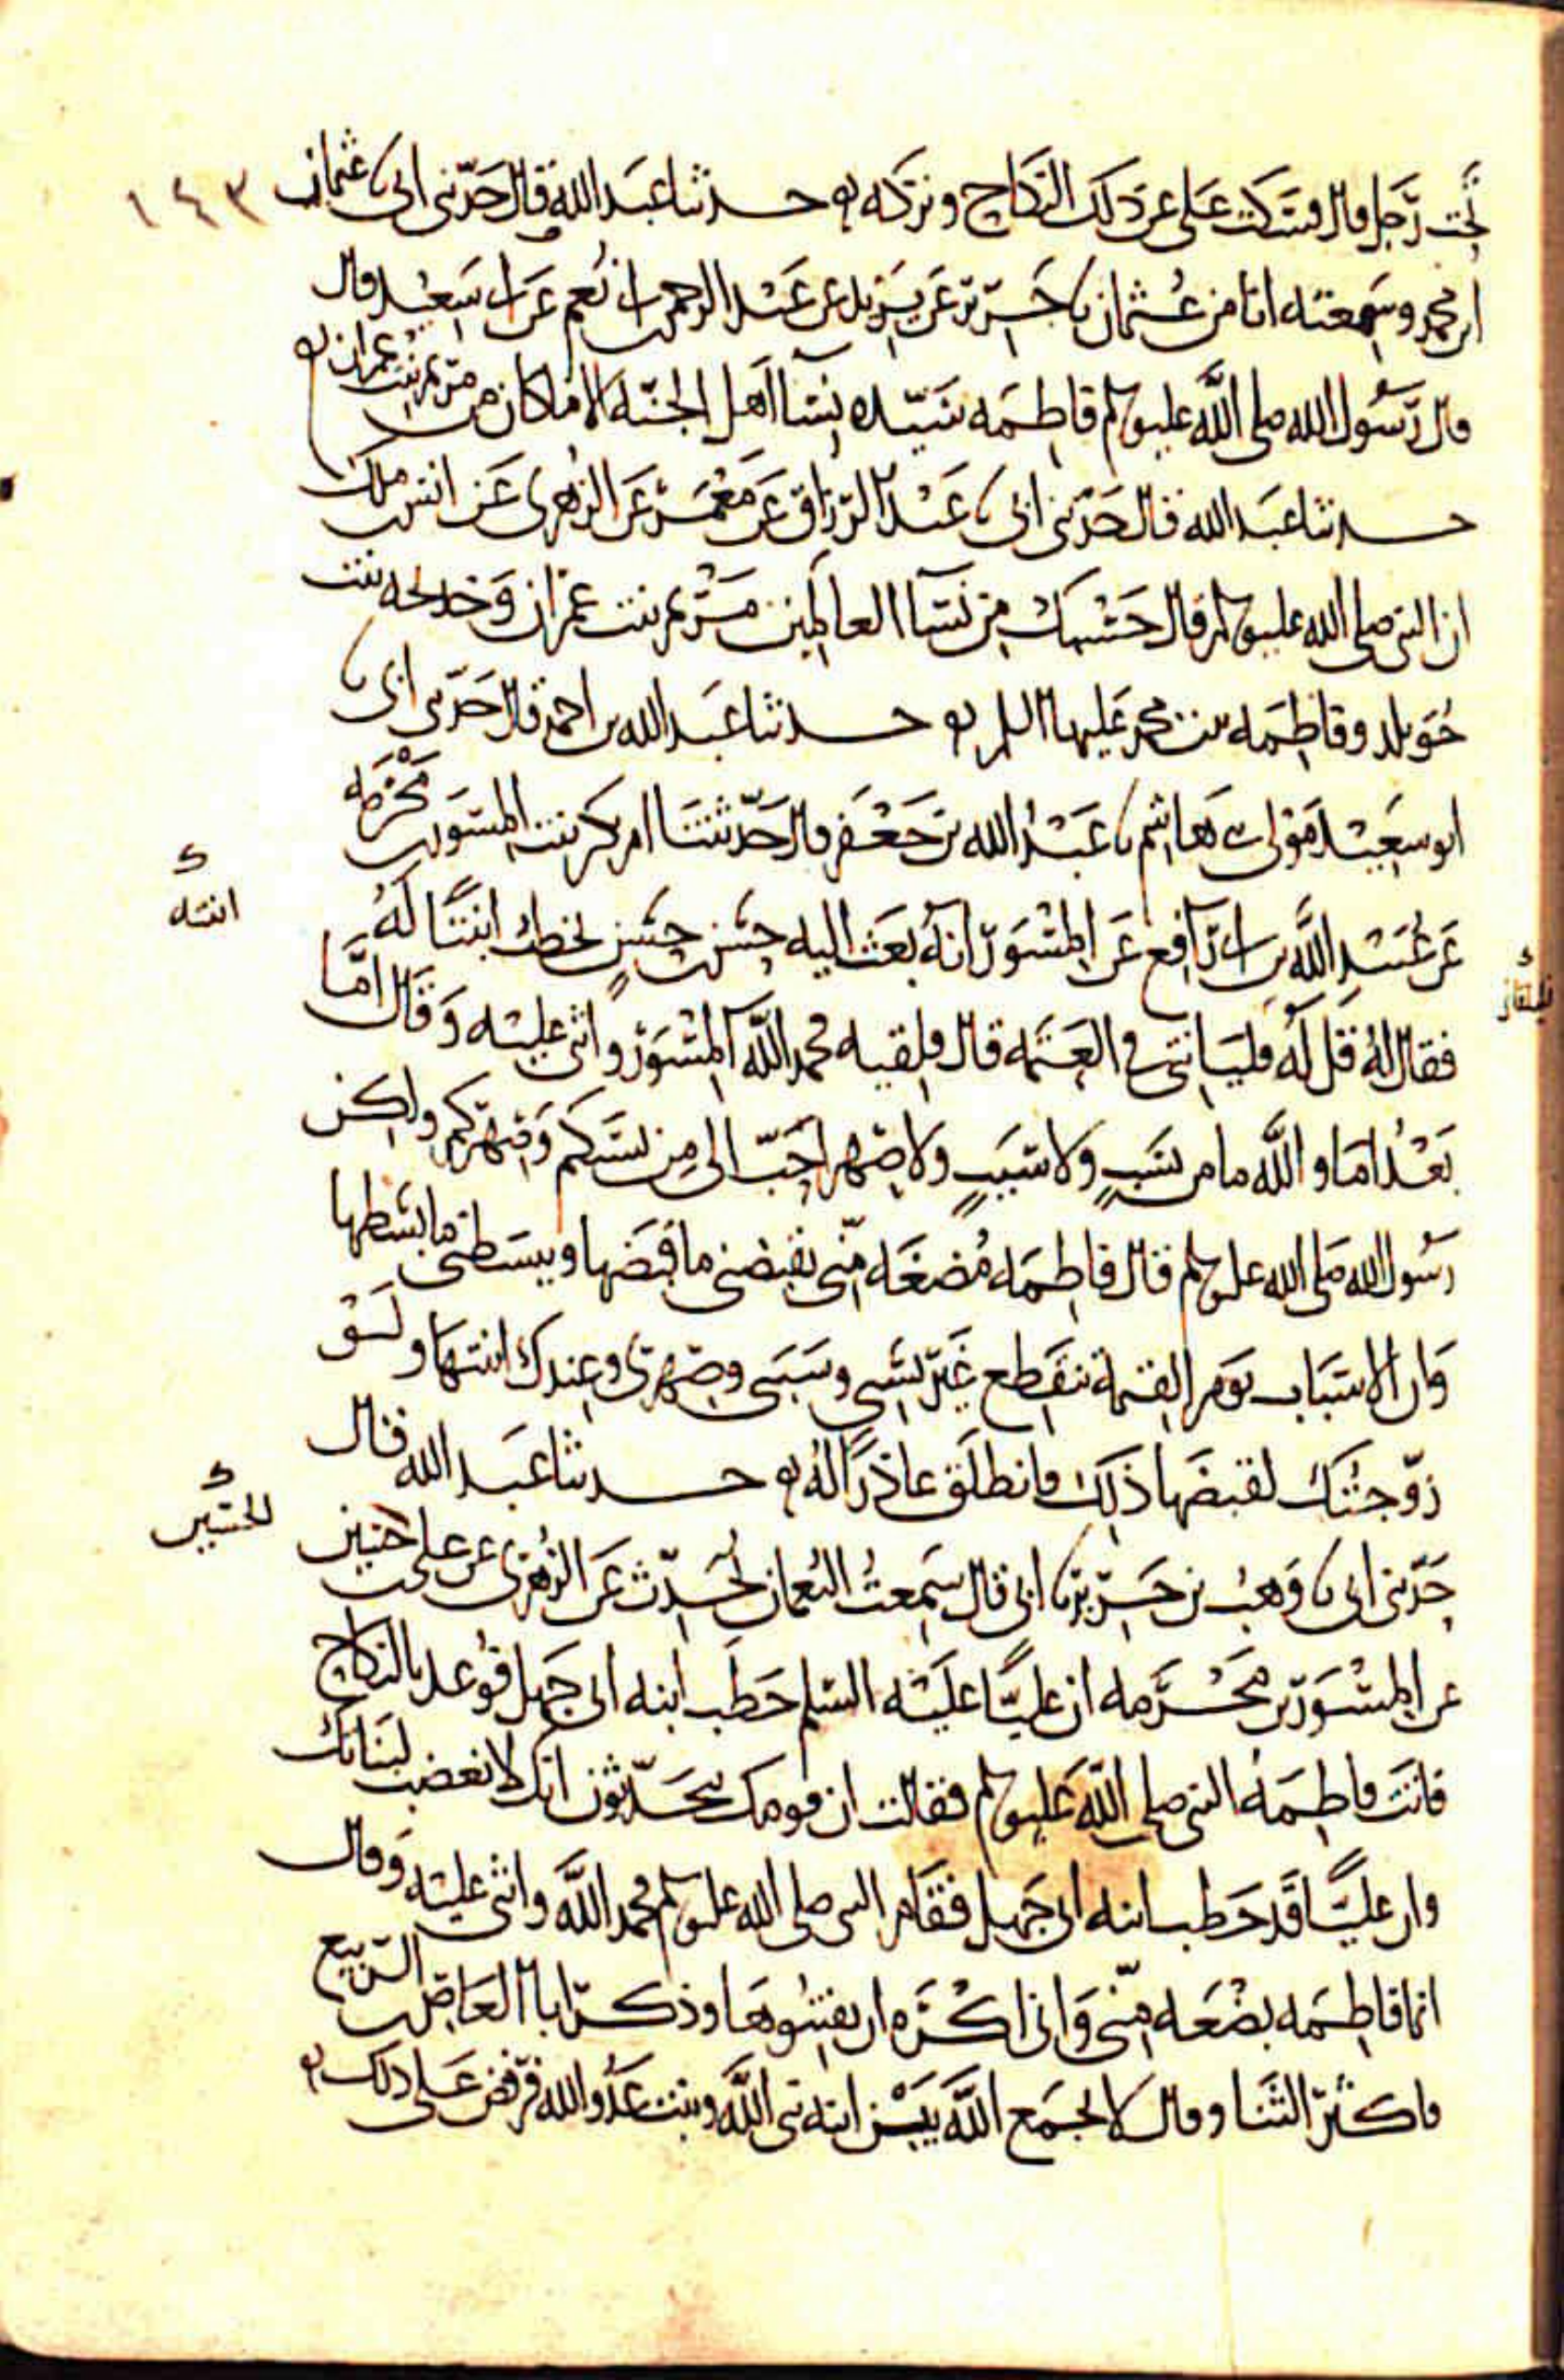 ١٤٣
تحت رجل قال فسكت علي عن ذلك النكاح وتركه حدثنا عبد الله قال حدثني ابي نا عثمان
ابن محمد وسمعته انا من عثمان نا جرير عن يزيد عن عبد الرحمن بن ابي نعم عن ابي سعيد قال
قال رسول الله صلى الله عليه وسلم فاطمه سيده نسا اهل الجنه الا ما كان من مريم بنت عمران
حدثنا عبد الله قال حدثني ابي نا عبد الرزاق عن معمر عن الزهري عن انس بن ملك
ان النبي صلى الله عليه وسلم قال حسبك من نسآ العالمين مريم بنت عمران وخديجه بنت
خويلد وفاطمه بنت محمد عليها السلم حدثنا عبد الله بن احمد قال حدثني ابي نا
ابو سعيد مولى بني هاشم نا عبد الله بن جعفر قال حدثتنا ام بكر بنت المسور بن مخرمه
عن عبيد الله بن ابي رافع عن المسور انه بعث اليه حسن بن حسن يخطب ابنتا له
ابنته
فقال له قل له فلياتني في العتمه قال فلقيه فحمد الله المسور واثنى عليه وقال اما
بعد اما والله ما من نسب ولا سبب ولا صهر احب الي من نسبكم وصهركم ولكن
رسول الله صلى الله عليه وسلم قال فاطمه مضغه مني يقبضني ما قبضها ويبسطني ما بسطها
وان الاسباب يوم القيمة تنقطع غير نسبي وسببي وصهري وعندك ابنتها ولو
زوجتك لقبضها ذلك فانطلق عاذرا له حدثنا عبد الله قال
حدثني ابي نا وهب بن جرير نا ابي قال سمعت النعمان يحدث عن الزهري عن علي بن حسين
الحسين
عن المسور بن مخرمه ان عليا عليه السلم خطب ابنه ابي جهل فوعد بالنكاح
فاتت فاطمه النبي صلى الله عليه وسلم فقالت ان قومك يتحدثون انك لا تغضب لبناتك
وان عليا قد خطب ابنه ابي جهل فقام النبي صلى الله عليه وسلم فحمد الله واثنى عليه وقال
انما فاطمه بضعه مني واني اكره ان يفتنوها وذكر ابا العاص بن الربيع
فاكثر الثنا وقال لا يجمع الله بين ابنه نبي الله وبنت عدو الله فرفض علي ذلك